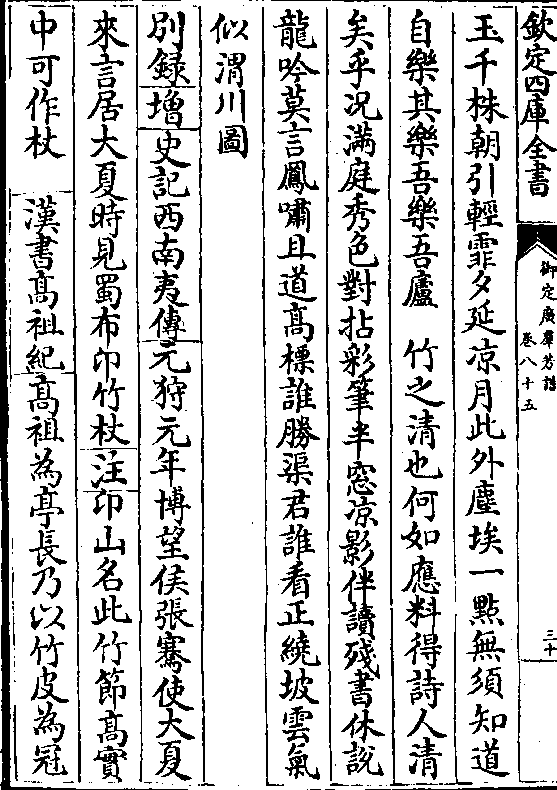 欽定四庫全書
御定廣羣芳譜
卷八十五
三十
玉千株朝引輕霏夕延凉月此外塵埃一點無須知道
自樂其樂吾樂吾廬　竹之清也何如應料得詩人清
矣乎況滿庭秀色對拈彩筆半窓凉影伴讀殘書休說
龍吟莫言鳳嘯且道高標誰勝渠君誰看正繞坡雲氣
似渭川圖
別録增史記西南夷傳元狩元年博望侯張騫使大夏
來言居大夏時見蜀布卭竹杖注卭山名此竹節高實
中可作杖　漢書高祖紀高祖為亭長乃以竹皮為冠